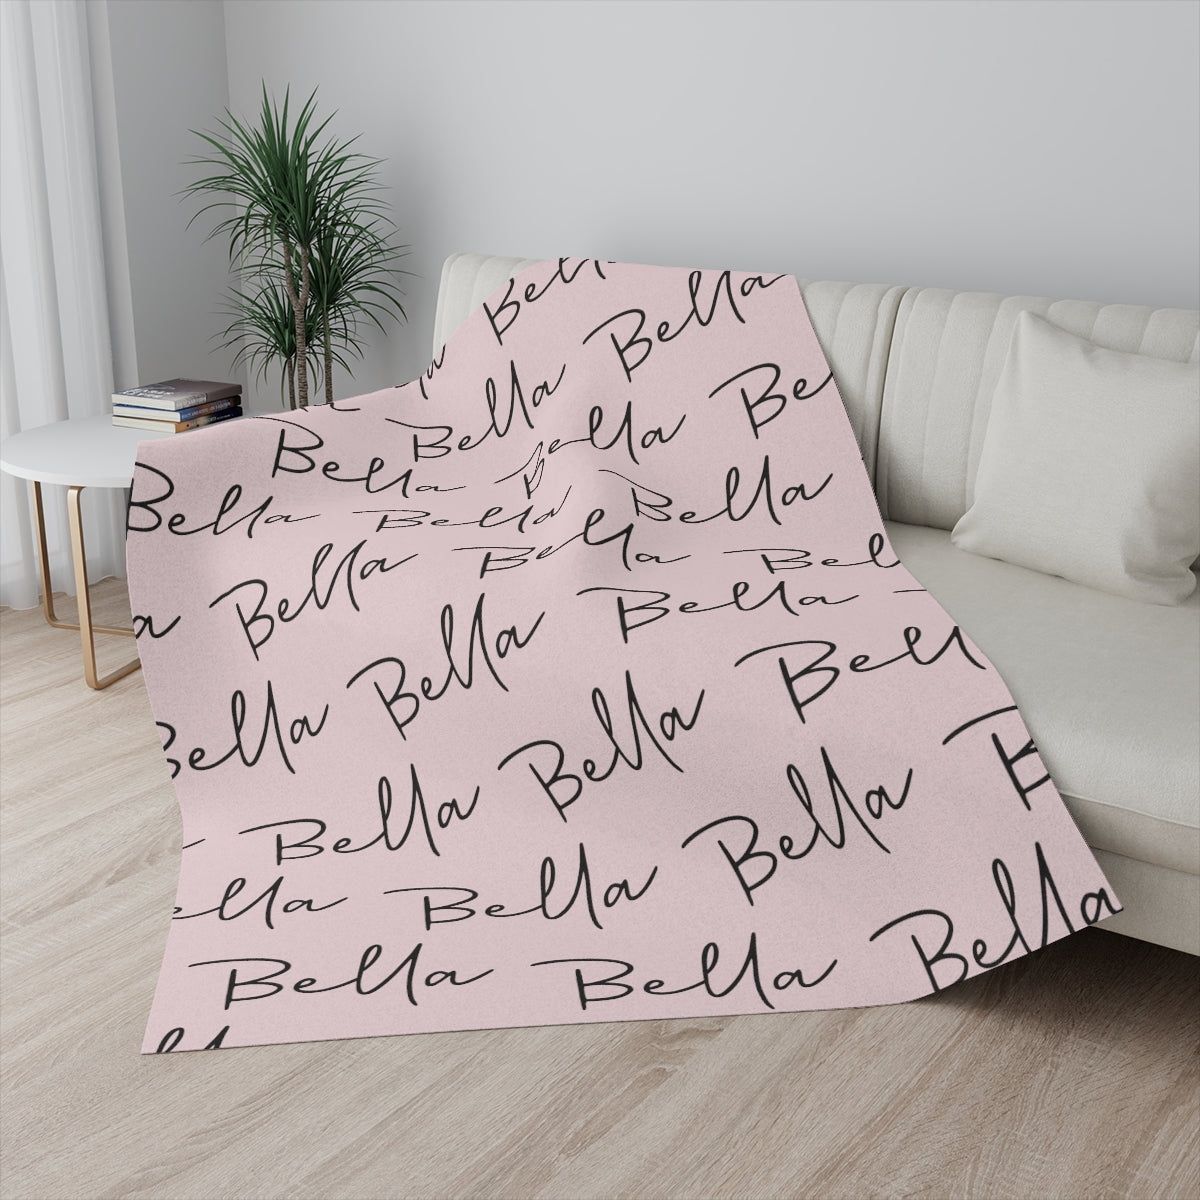 Bella
Bella
Bella
Bella Be
Bella Bella
Bella Bella Bella
Bella Bella Bell
a Bella Bella
Bella Bella Bell
Bella Bella B
ella Bella Bella
Bella Bella Bella